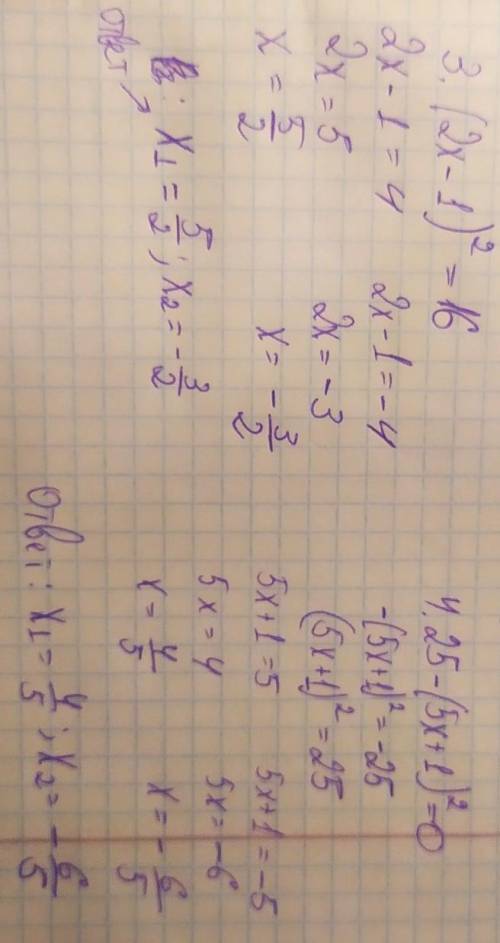 3. (2x - 1)² = 16
2x - 1 = 4 2x - 1 = -4
2x = 5 2x = -3
x = 5/2 x = -3/2
Ответ : x₁ = 5/2 ; x₂ = -3/2
4. 25 - (5x + 1)² = 0
-(5x + 1)² = -25
(5x + 1)² = 25
5x + 1 = 5 5x + 1 = -5
5x = 4 5x = -6
x = 4/5 x = -6/5
Ответ: x₁ = 4/5 ; x₂ = -6/5